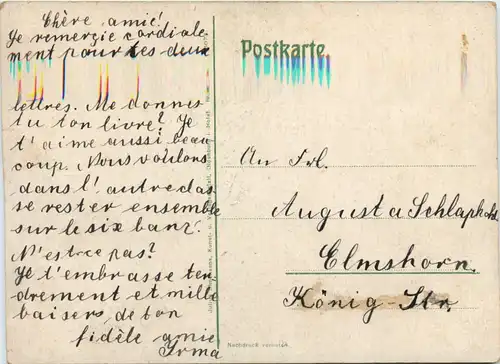 Chère amie!
Je remergie cordiale-
ment pour tes deux
lettres. Me donnes
tu ton livre? Je
t'aime aussi beau
coup. Nous voulons
dans l'autredas-
se rester ensemble
sur le six banz.
N'est ce pas?
Je t'embrasse ten
drement et mille
baisers, de ton
fidèle amie
Irma
Postkarte.
An Frl.
Augusta Schlapkohl
Elmshorn.
König-Str.
Nachdruck verboten.